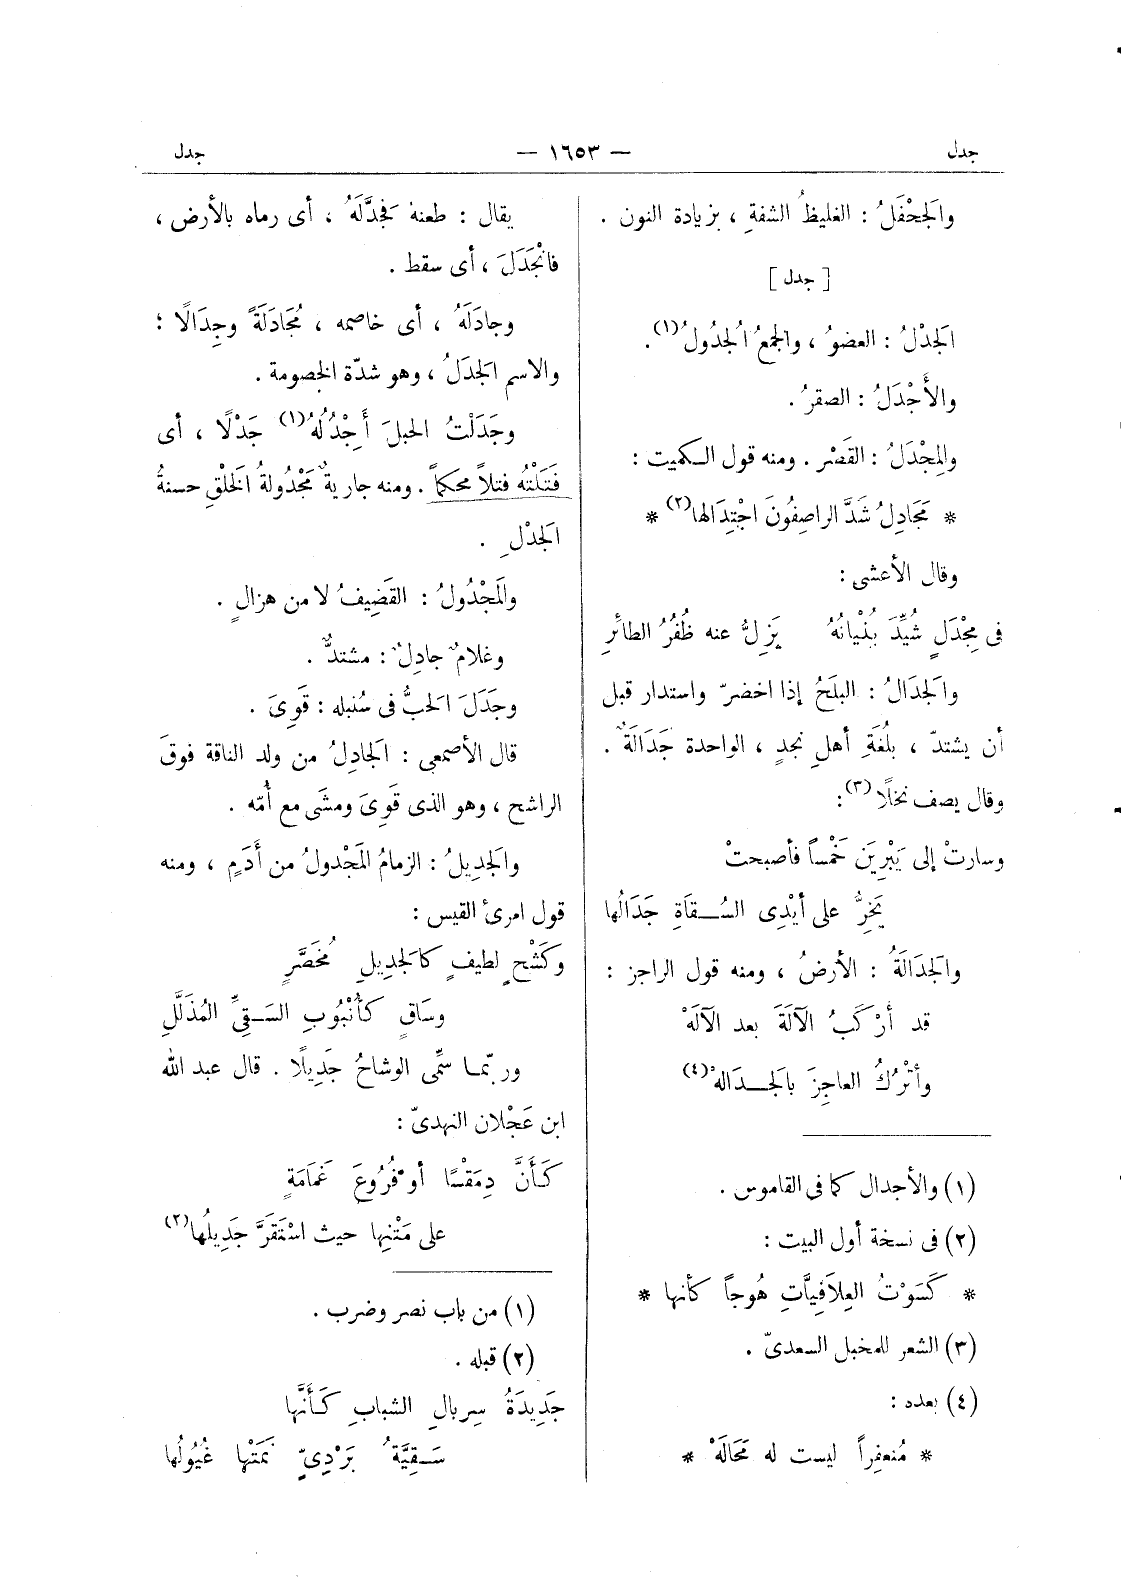 جدل — ١٦٥٣ — جدل
والجَحْفَلُ : الغليظُ الشفةِ ، بزيادة النون .
[ جدل ]
الجَدْلُ : العضوُ ، والجمعُ الجُدُولُ(١).
والأَجْدَلُ : الصقرُ .
والمِجْدَلُ : القَصْر . ومنه قول الكميت :
* مَجَادِلُ شَدَّ الراصِفُونَ اجْتِدَالها(٢) *
وقال الأعشى :
فى مِجْدَلٍ شُيِّدَ بُنْيانُهُ يَزِلُّ عنه ظُفُرُ الطائرِ
والجَدَالُ : البلَحُ إذا اخضرّ واستدار قبل
أن يشتدّ ، بلُغَةِ أهلِ نجدٍ ، الواحدة جَدَالَةٌ .
وقال يصف نخلًا(٣):
وسارتْ إلى يَبْرِينَ خَمْساً فأصبحتْ
يَخِرُّ على أيْدِى السُقَاةِ جَدَالُها
والجَدَالَةُ : الأرضُ ، ومنه قول الراجز :
قد أرْكَبُ الآلَةَ بعد الآلَهْ
وأتْرُكُ العاجِزَ بالجَدَالهْ(٤)
(١) والأجدال كما فى القاموس .
(٢) فى نسخة أول البيت :
* كَسَوْتُ العِلَافِيَّاتِ هُوجاً كأنها *
(٣) الشعر للمخبل السعدىّ .
(٤) بعده :
* مُنعفِراً ليست له مَحَالَهْ *
يقال : طعنه فجدَّلَهُ ، أى رماه بالأرض ،
فانْجَدَلَ ، أى سقط .
وجادَلَهُ ، أى خاصمه ، مُجَادَلَةً وجِدَالًا ؛
والاسم الجَدَلُ ، وهو شدّة الخصومة .
وجَدَلْتُ الحبلَ أَجْدُلُهُ(١) جَدْلًا ، أى
فَتَلْتُه فتلاً محكماً . ومنه جاريةٌ مَجْدُولةُ الخلْقِ حسنةُ
الجَدْلِ .
والمَجْدُولُ : القَضِيفُ لا من هزالٍ .
وغلامٌ جادِلٌ : مشتدٌّ .
وجَدَلَ الحَبُّ فى سُنبله : قَوِىَ .
قال الأصمعى : الجادِلُ من ولد الناقة فوقَ
الراشح ، وهو الذى قَوِىَ ومشَى مع أُمّه .
والجَدِيلُ : الزمامُ المَجْدولُ من أَدَمٍ ، ومنه
قول امرئ القيس :
وكَشْحٍ لطيفٍ كالجَدِيلِ مُخَصَّرٍ
وسَاقٍ كأنْبُوبِ السَقِىِّ المُذَلَّلِ
وربّما سمِّى الوشاحُ جَدِيلًا . قال عبد الله
ابن عَجْلان النهدىّ :
كَأَنَّ دِمَقْسًا أو فُرُوعَ غَمَامَةٍ
على مَتْنِها حيث اسْتَقَرَّ جَدِيلُها(٢)
(١) من باب نصر وضرب .
(٢) قبله .
جَدِيدَةُ سِربالِ الشبابِ كَأَنَّها
سَقِيَّةُ بَرْدِىٍّ نَمَتْها غُيُولُها